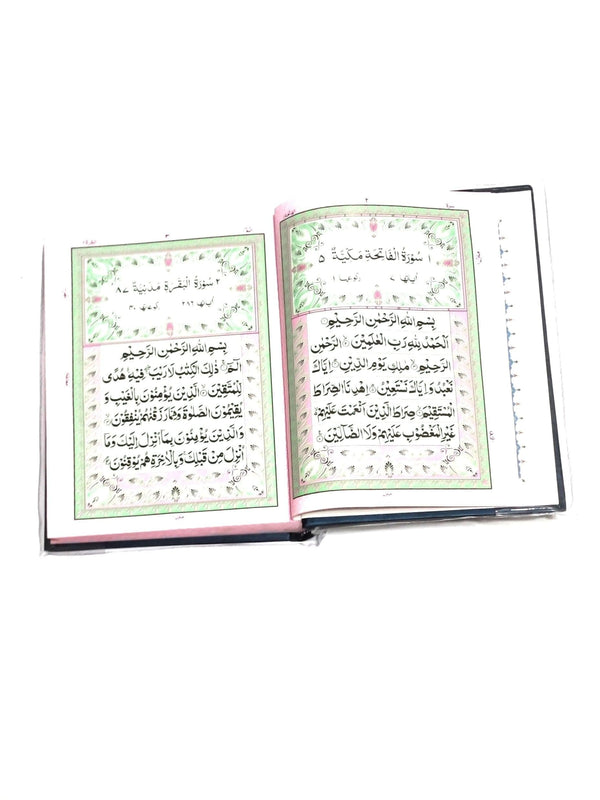 ٢
١ سُوْرَةُ الْفَاتِحَةِ مَكِّيَّةٌ ٥
اٰیاتها ٧ رکوعها ١
بِسْمِ اللّٰهِ الرَّحْمٰنِ الرَّحِيْمِ
اَلْحَمْدُ لِلّٰهِ رَبِّ الْعٰلَمِيْنَ ۙ الرَّحْمٰنِ
الرَّحِيْمِ ۙ مٰلِكِ يَوْمِ الدِّيْنِ ؕ اِيَّاكَ
نَعْبُدُ وَاِيَّاكَ نَسْتَعِيْنُ ؕ اِهْدِنَا الصِّرَاطَ
الْمُسْتَقِيْمَ ۙ صِرَاطَ الَّذِيْنَ اَنْعَمْتَ عَلَيْهِمْ
غَيْرِ الْمَغْضُوْبِ عَلَيْهِمْ وَلَا الضَّآلِّيْنَ
٣
٢ سُوْرَةُ الْبَقَرَةِ مَدَنِيَّةٌ ٨٧
اٰیاتها ٢٨٦ رکوعاتها ٤٠
بِسْمِ اللّٰهِ الرَّحْمٰنِ الرَّحِيْمِ
الٓمّٓ ۚ ذٰلِكَ الْكِتٰبُ لَا رَيْبَ ۛ فِيْهِ ۛ هُدًى
لِّلْمُتَّقِيْنَ ۙ الَّذِيْنَ يُؤْمِنُوْنَ بِالْغَيْبِ وَ
يُقِيْمُوْنَ الصَّلٰوةَ وَمِمَّا رَزَقْنٰهُمْ يُنْفِقُوْنَ ۙ
وَالَّذِيْنَ يُؤْمِنُوْنَ بِمَآ اُنْزِلَ اِلَيْكَ وَمَآ
اُنْزِلَ مِنْ قَبْلِكَ ۚ وَبِالْاٰخِرَةِ هُمْ يُوْقِنُوْنَ